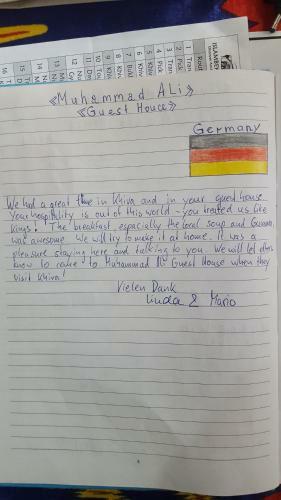 «Muhammad ALi»
«Guest Houce»
Germany
We had a great time in Khiva and in your guesthouse.
Your hospitality is out of this world - you treated us like
kings! The breakfast, especially the local soup and
was awesome. We will try to make it at home. It was a
pleasure staying here and talking to you. We will let others
know to come to Muhammad Ali Guest House when they
visit Khiva!
Vielen Dank
Linda & Mario